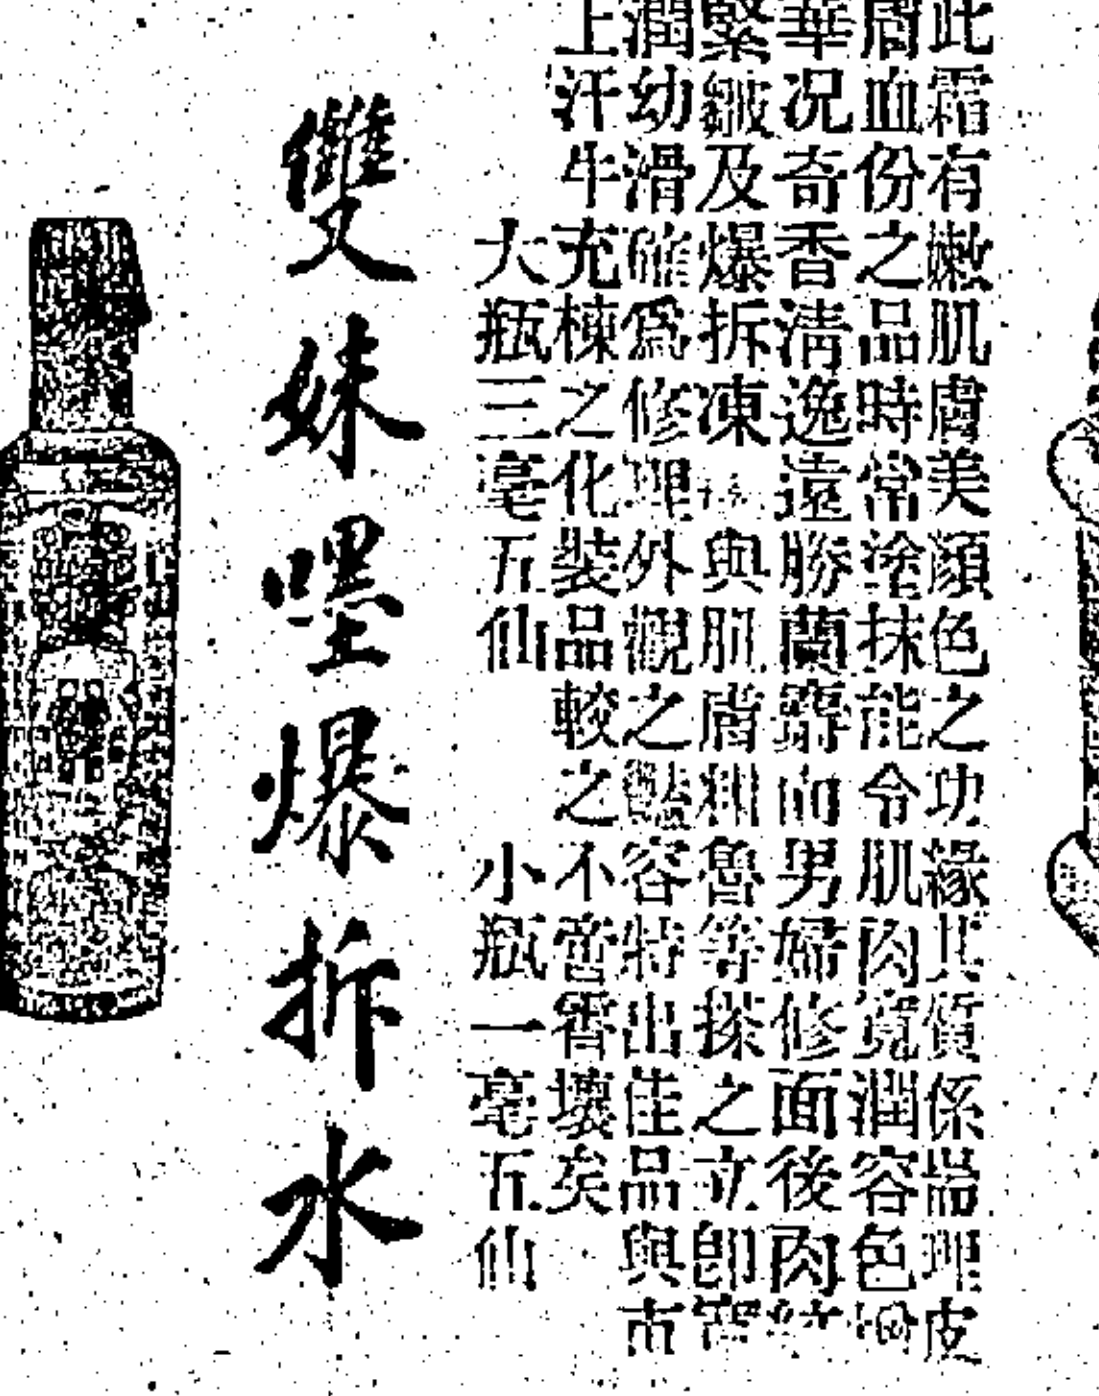 此霜有嫩肌膚美顔色之功緣其質係耑理皮
膚血份之品時常塗抹能令肌肉寬潤容色
華况奇香淸逸遠勝蘭麝而男婦修面後肉
緊皺及爆拆凍與肌膚粗魯等搽之立卽
潤幼滑確爲修理外觀之容特出佳品與市
上汗牛充棟之化裝品較之不啻霄壤矣
大瓶三毫五仙 小瓶一毫五仙
雙妹嚜爆拆水